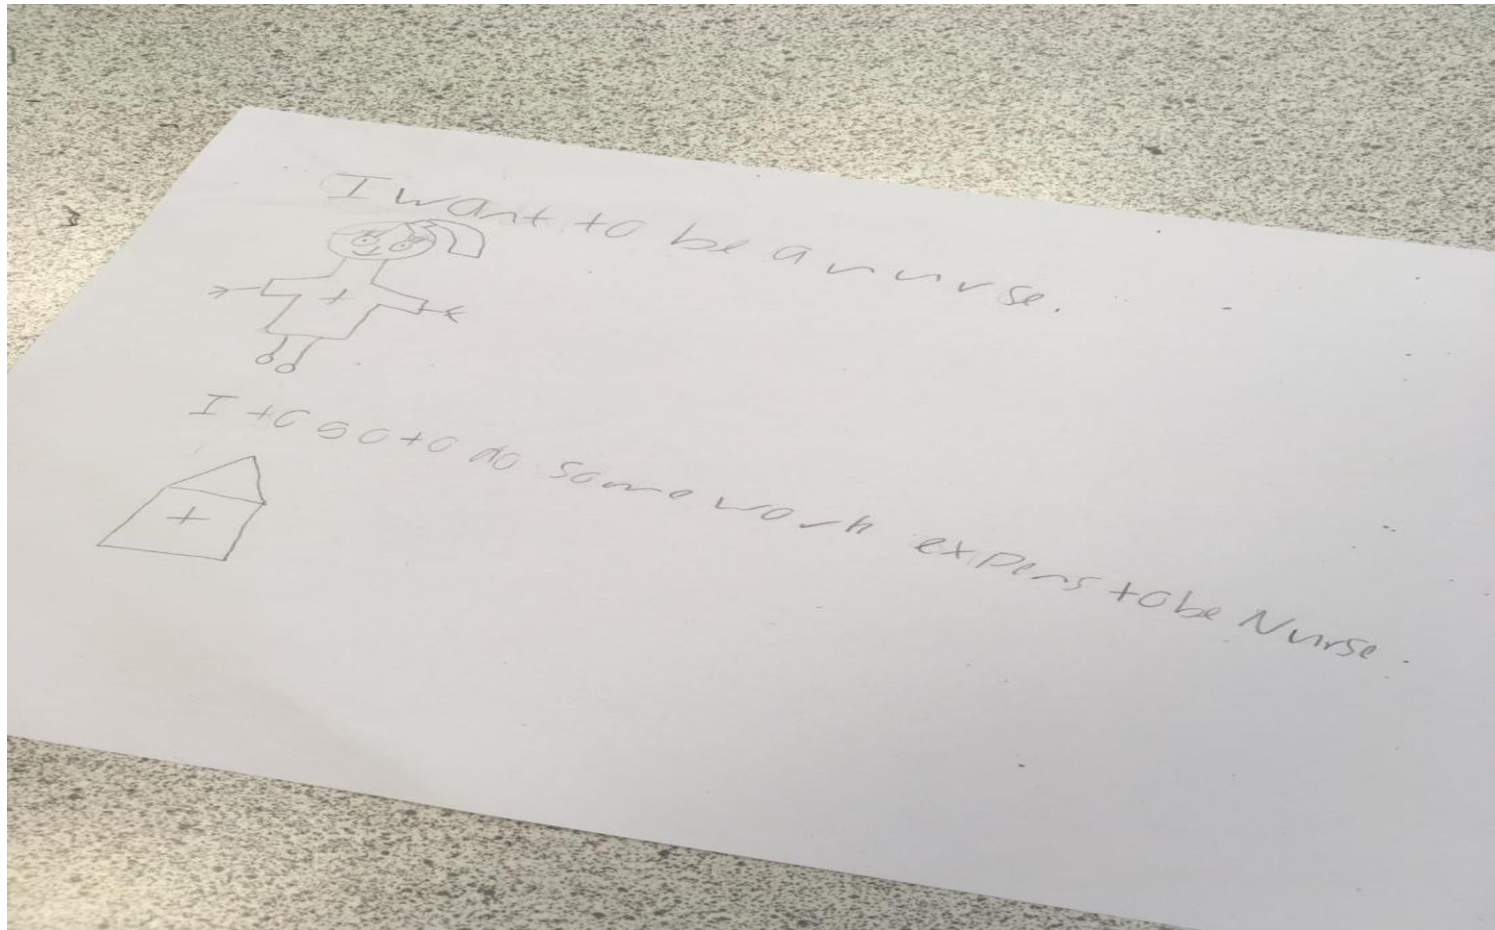 I want to be a nurse.
I to go to do some work expens to be Nurse.